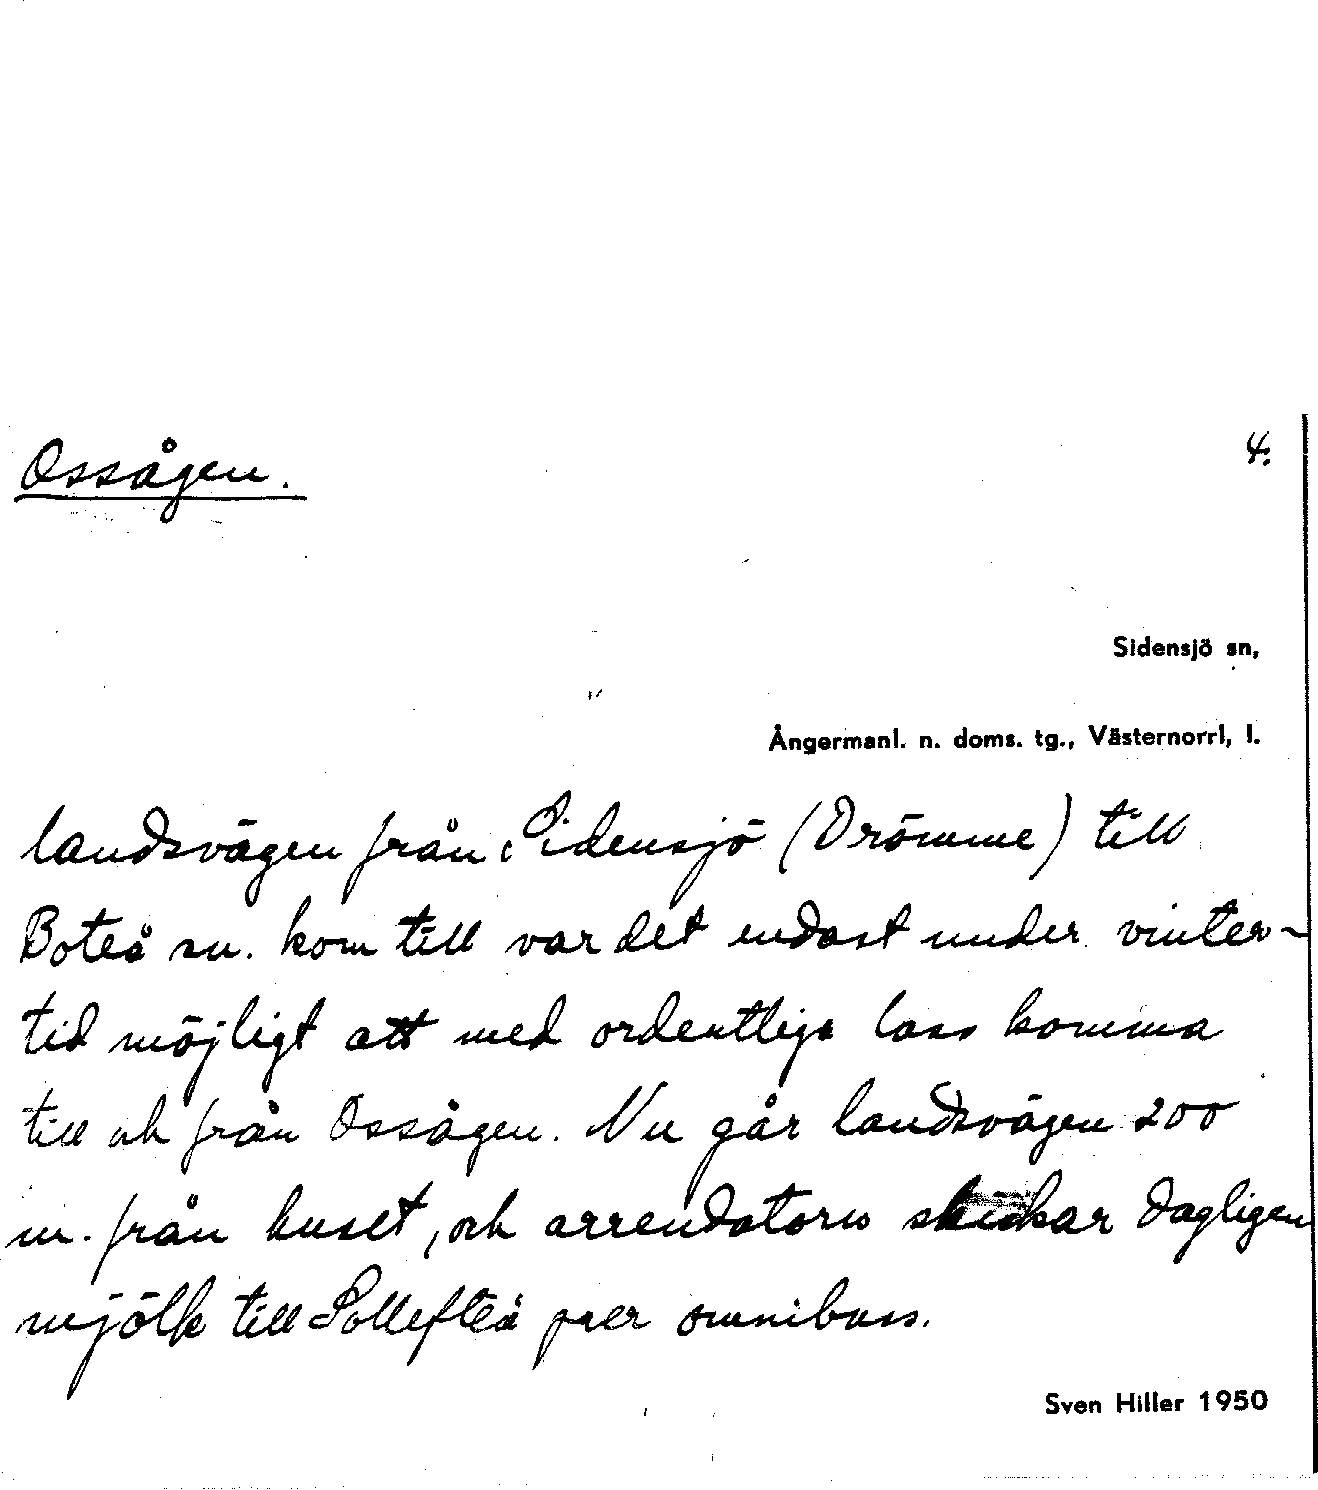 Ossågen.
4.
Sidensjö sn,
Ångermanl. n. doms. tg., Västernorrl, l.
landsvägen från Sidensjö (Drömme) till
Boteå sn. kom till var det endast under vinter-
tid möjligt att med ordentliga lass komma
till och från Ossågen. Nu går landsvägen 200
m. från huset, och arrendatorn skickar dagligen
mjölk till Sollefteå per omnibuss.
Sven Hiller 1950